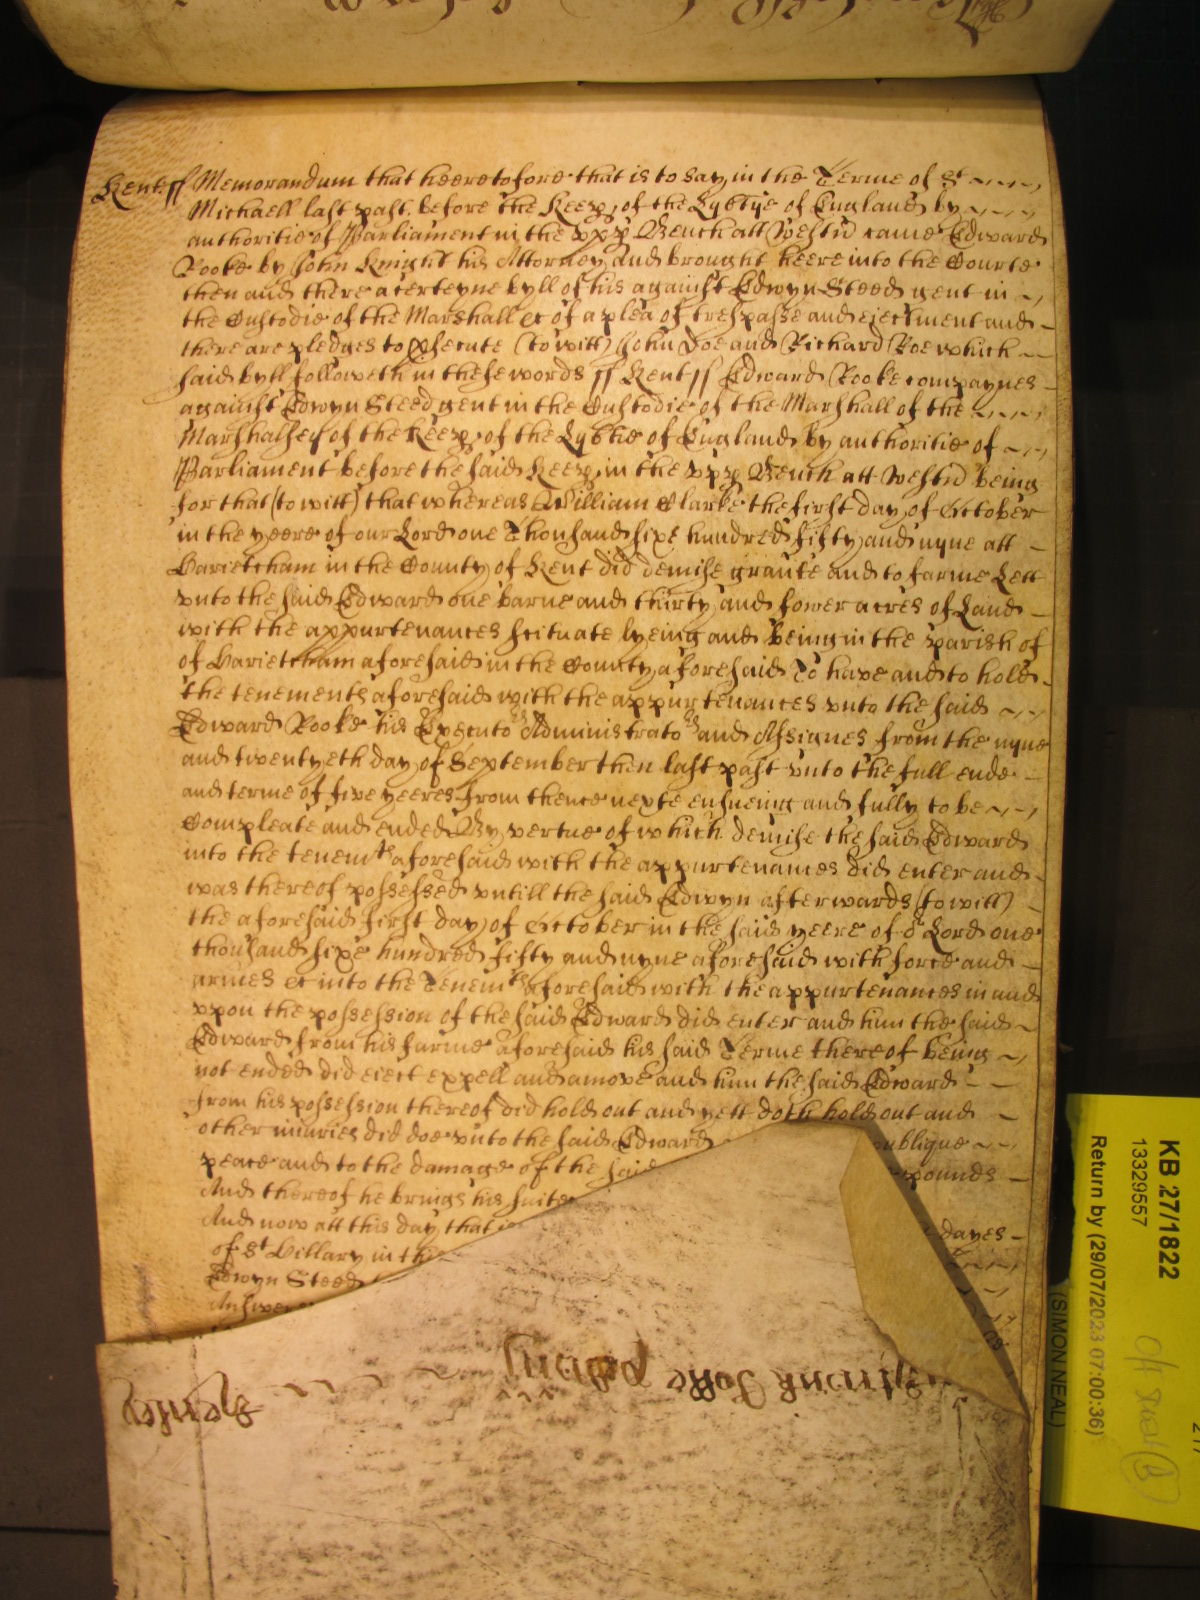 Kent ss Memorandum that heeretofore that is to say in the Terme of St
Michaell last past before the Keep[er]s of the Lyb[er]tye of England by
authoritie of Parliament in the upp[er] Bench att Westm[inster] came Edward
Rooke by John Knight his Attorney and brought heere into the Courte
then and there a certeyne byll of his against Edwyn Steed gent in
the Custodie of the Marshall &c of a plea of trespasse and ejectment and
there are pledges to p[ro]secute (to witt) John Doe and Richard Roe which
said byll followeth in these words ss Kent ss Edward Rooke complaynes
against Edwyn Steed gent in the Custodie of the Marshall of the
Marshalsey of the Keep[er]s of the Lyb[er]tie of England by authoritie of
Parliament before the said Keep[er]s in the upp[er] Bench att Westm[inster] being
for that (to witt) that whereas William Clarke the first day of October
in the yeere of our Lord one Thousand sixe hundred fifty and nyne att
Harietsham in the County of Kent did demise graunte and to farme Lett
unto the said Edward one barne and thirty and fower acres of Land
with the appurtenances scituate lyeing and being in the parish of
of Harietsham aforesaid in the County aforesaid To have and to hold
the tenements aforesaid with the appurtenances unto the said
Edward Rooke his Executors Administrators and Assignes from the nyne
and twentyeth day of September then last past unto the full ende
and terme of five yeeres from thence nexte ensueing and fully to be
Compleate and ended By vertue of which demise the said Edward
into the tenemts aforesaid with the appurtenances did enter and
was thereof possessed untill the said Edwyn afterwards (to witt)
the aforesaid first day of October in the said yeere of or Lord one
thousand sixe hundred fifty and nyne aforesaid with force and
armes &c into the Tenemts aforesaid with the appurtenances in and
upon the possession of the said Edward did enter and him the said
Edward from his farme aforesaid his said Terme thereof being
not ended did eject expell and amove and him the said Edward
from his possession thereof did hold out and yett doth hold out and
other injuries did doe unto the said Edward publique
peace and to the damage of the said pounds
And thereof he brings his suite
And now att this day that is dayes
of St Hillary in
Edwyn Steed
KB 27/1822
13329557
Return by (29/07/2023 07:00:36)
(SIMON NEAL)